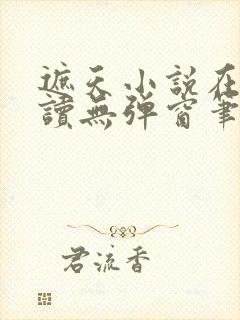 遮天小説在
讀無彈窗筆
君流香